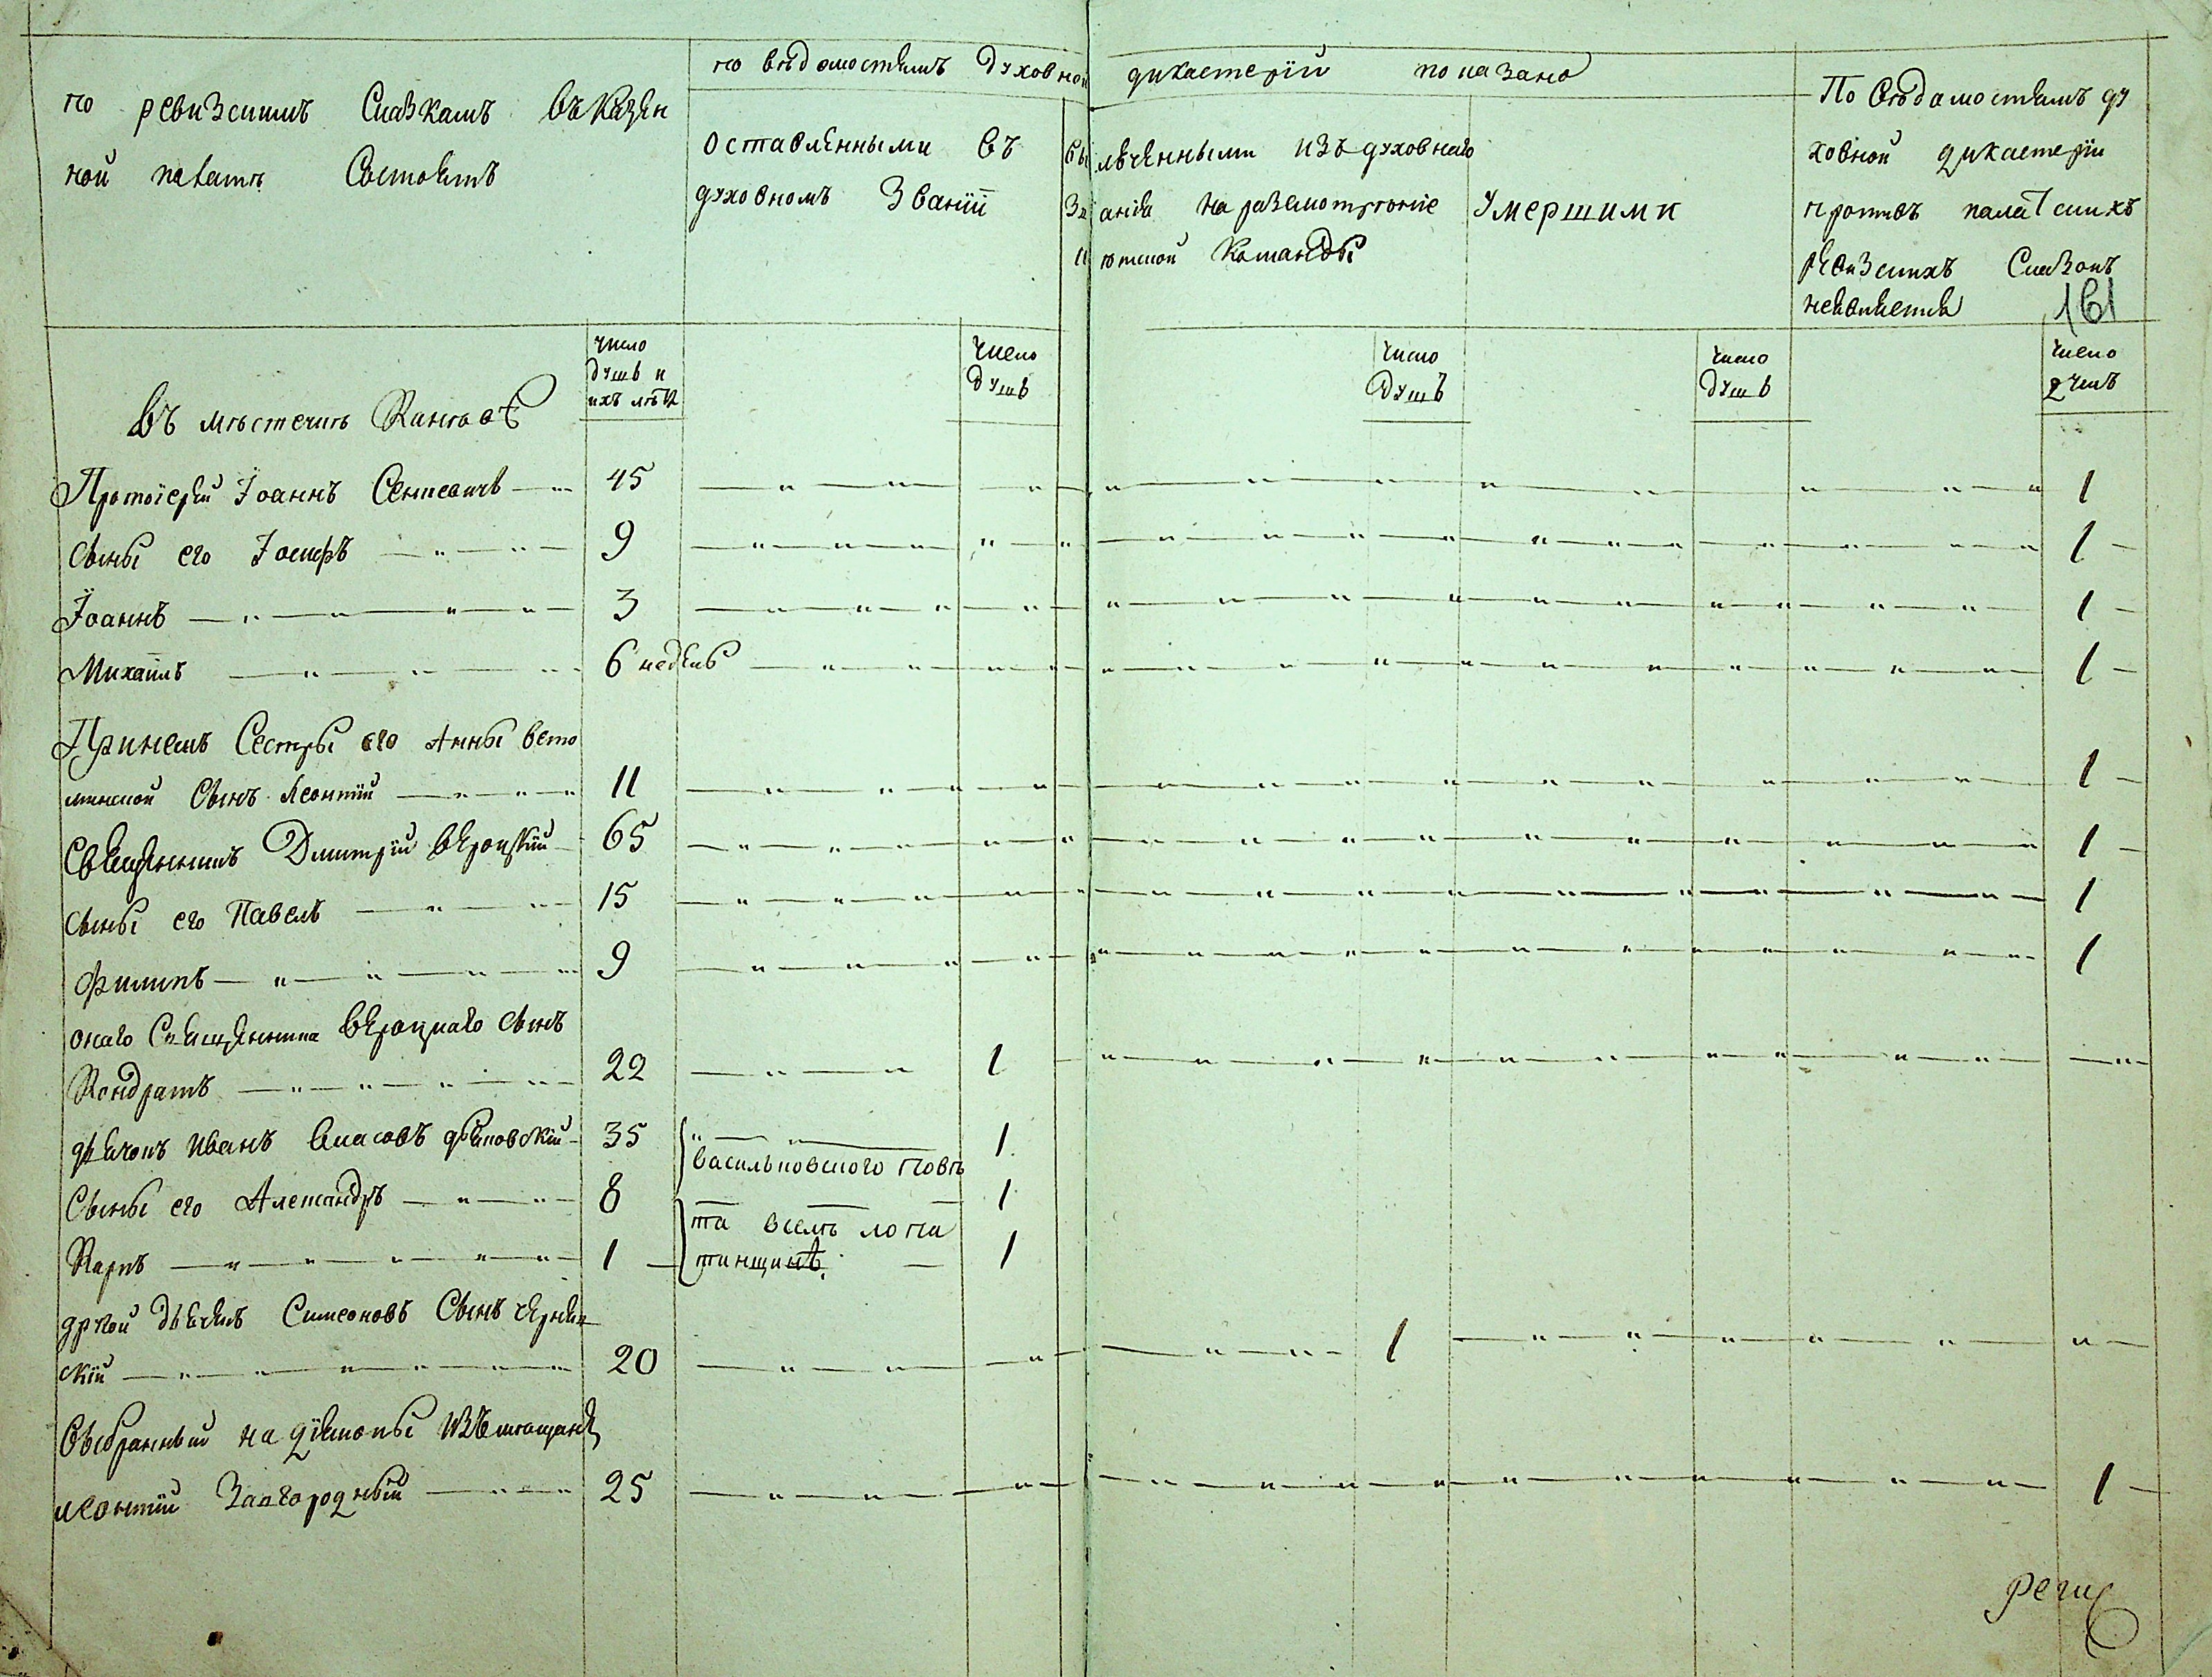 по ревизсимъ Сказкамъ въ Казен
ной палатѣ Состоятъ
по вѣдомостямъ Духовной дикастерїи показано
оставленными въ
духовномъ Званїи
вы
лѣченными изъ духовнаго
Зв
анїя на разсмотрѣнїе
ѣтской Команды
Умершими
По вѣдамостямъ ду
ховной дикастерїи
противъ палатскихъ
ревизскихъ Сказокъ
неявляется
161
число
душъ и
ихъ лѣтъ
число
душъ
число
душъ
число
душъ
число
душъ
въ мѣстечкѣ Каневѣ
Протоїерей Їоаннъ Сенкевичъ 45 1
сыны его Їосифъ 9 1
Їоаннъ 3 1
Михаилъ 6 недель 1
При немъ Сестры его Анны
Сынъ Леонтїй 11 1
Священникъ Дмитрїй Вероцкїй 65 1
сыны его Павелъ 15 1
Филипъ 9 1
онаго Священника Вероцкаго сынъ
Кондратъ 22 1
дьячокъ Иванъ Власовъ 35 1
васильковского повѣ
Сыны его Александръ 8 1
та вселѣ лопа
Карпъ 1 1
тинщинѣ
дркой дьячекъ Симеоновъ Сынъ Черняв
скїй 20 1
Выбранный на дїаконы изъ мѣщанъ
леонтїй Завгородный 25 1